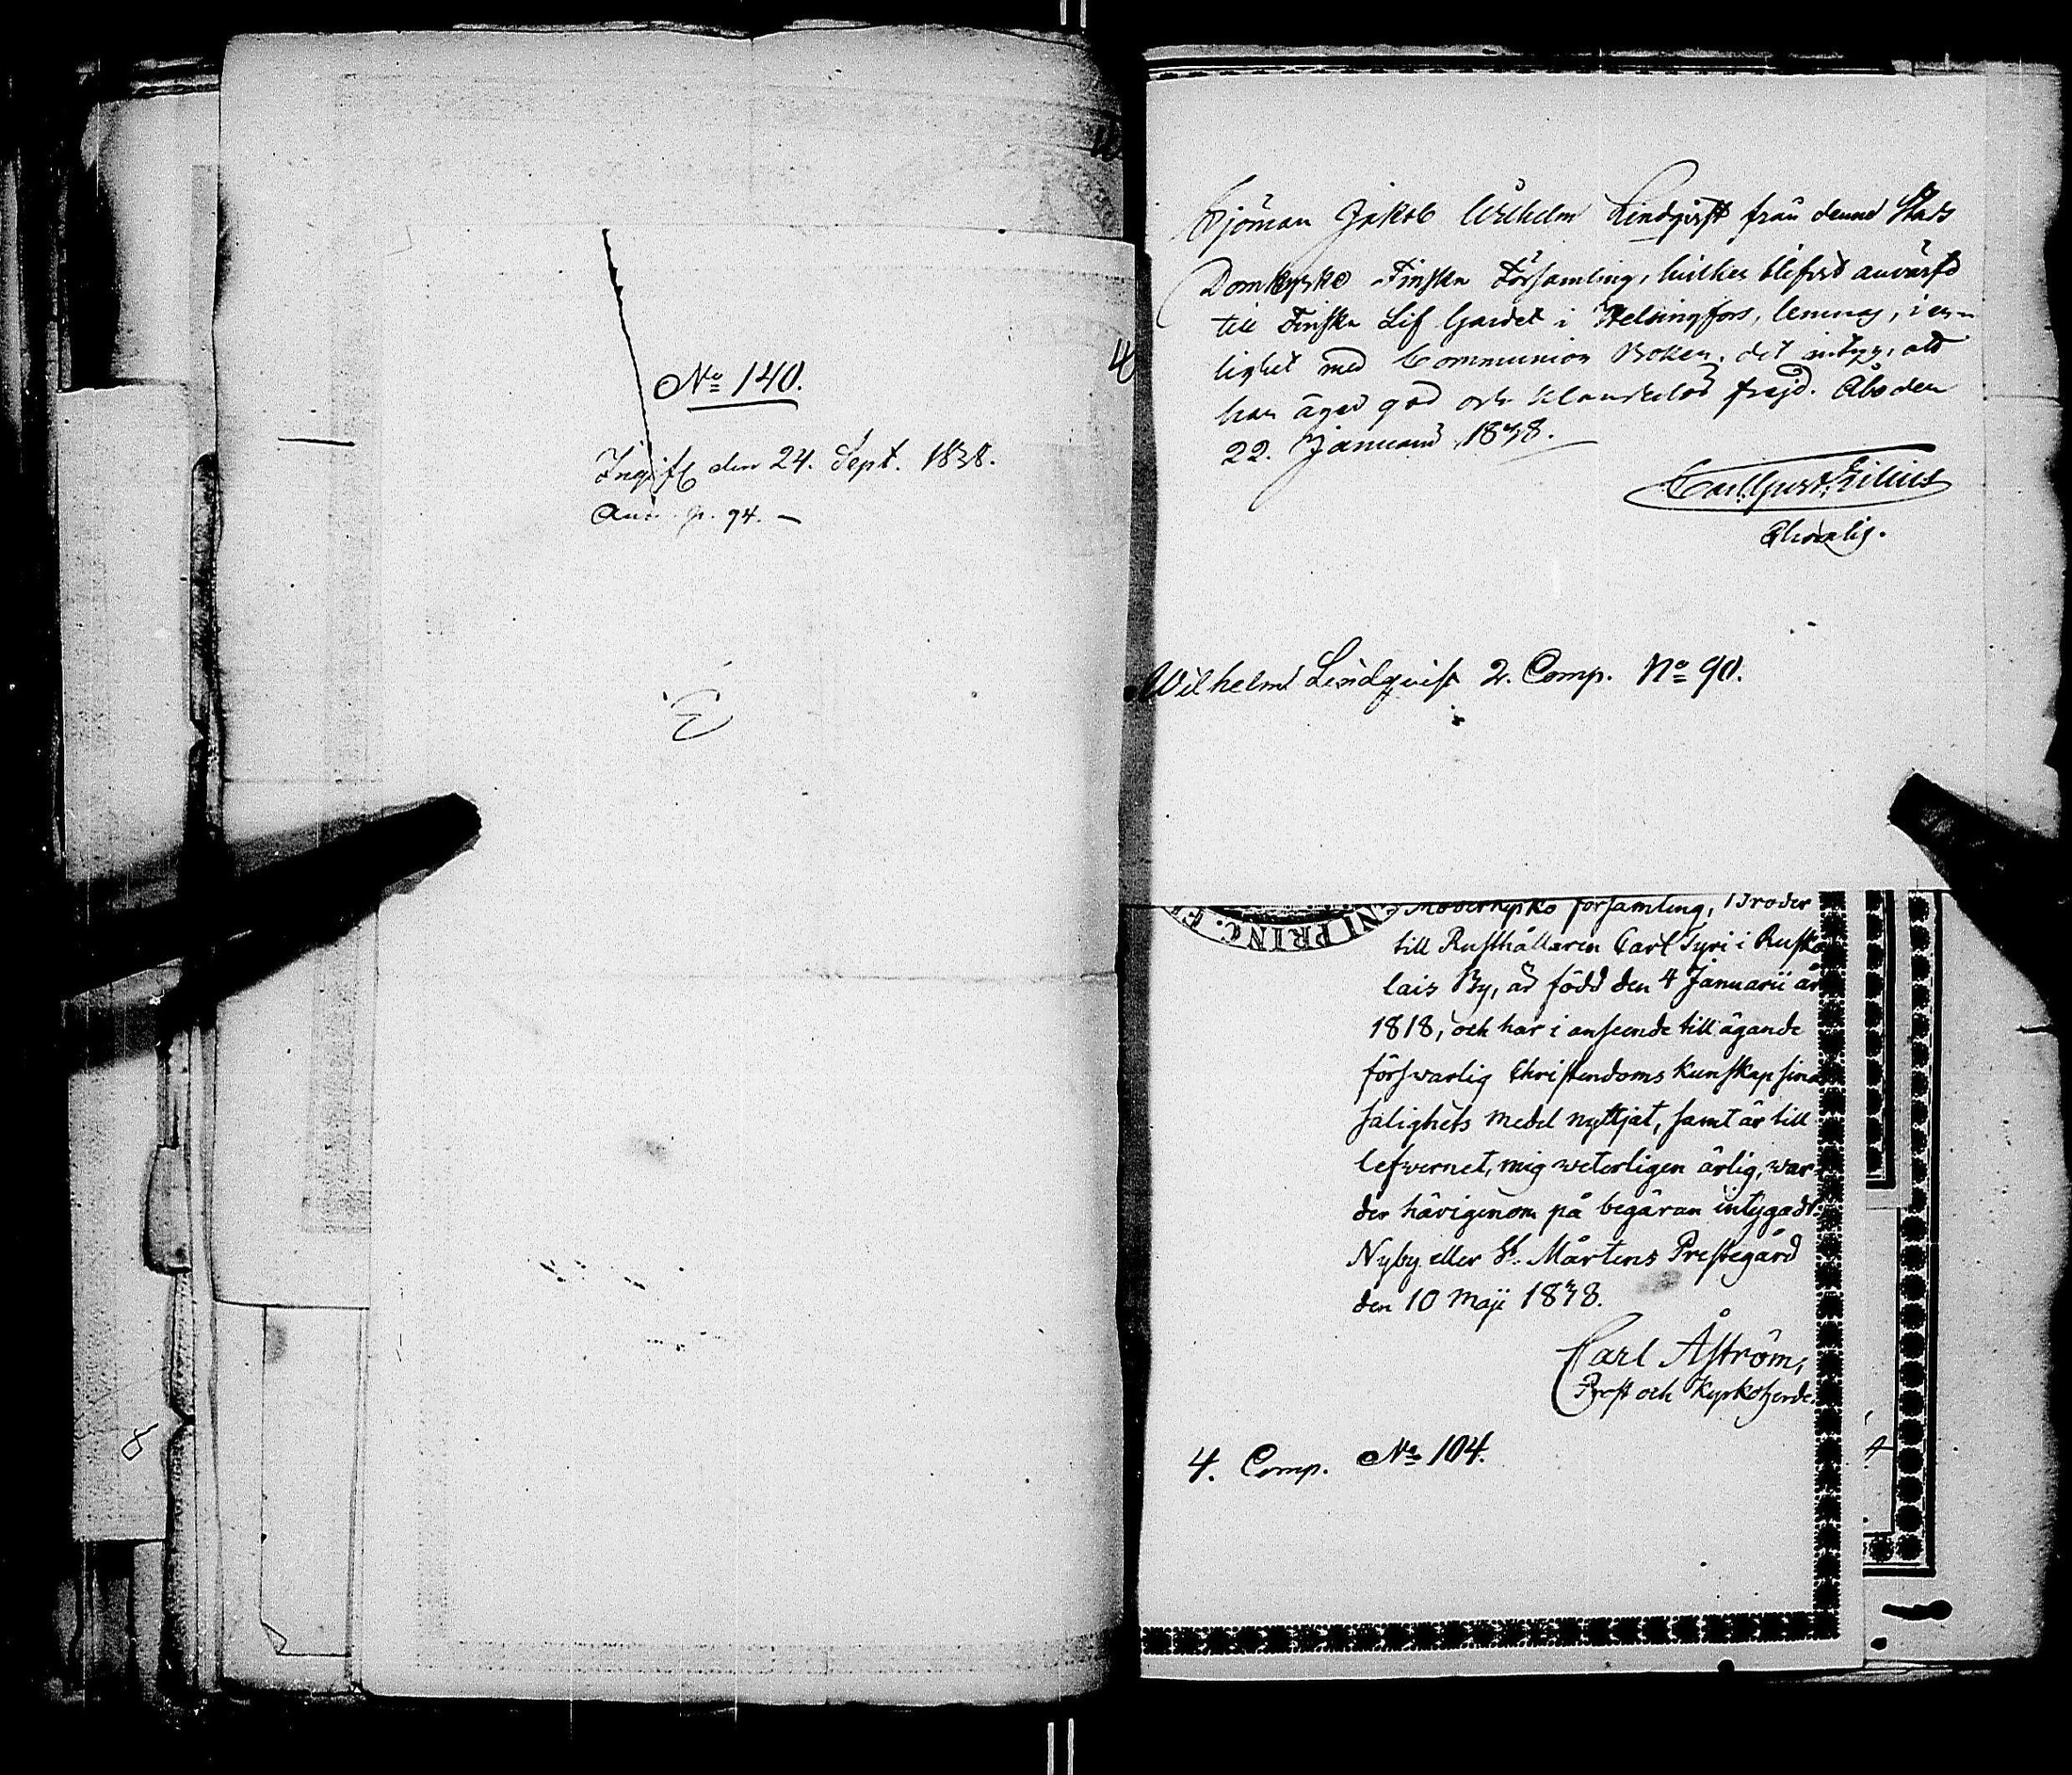 No 140.
Ingift den 24. Sept. 1838.
p. 94.
Sjöman Jakob Wilhelm Lindqvist från denne Stads
Domkyrko Finska Församling, hvilken blifvit anvärfd
till Finska Lif Gardet i Helsingfors, lemnas, i en-
lighet med Communion Boken, det intyg, att
han äger god och klanderlös frejd. Åbo den
22. Januarii 1838.
Carl Gust.
Wilhelm Lindqvist 2. Comp. No 90.
PRINC.
Moderkyrko församling, Broder
till Rusthållaren Carl Syri i Rusko
lais By, är född den 4 Januarii år
1818, och har i anseende till ägande
förswarlig Christendoms Kunskap sina
salighets medel nyttjat, samt är till
lefwernet, mig weterligen ärlig, war-
der härigenom på begäran intygadt.
Nyby eller St. Mårtens Prestegård
den 10 Maji 1838.
Carl Åström,
Prost och Kyrkoherde.
4. Comp. No 104.